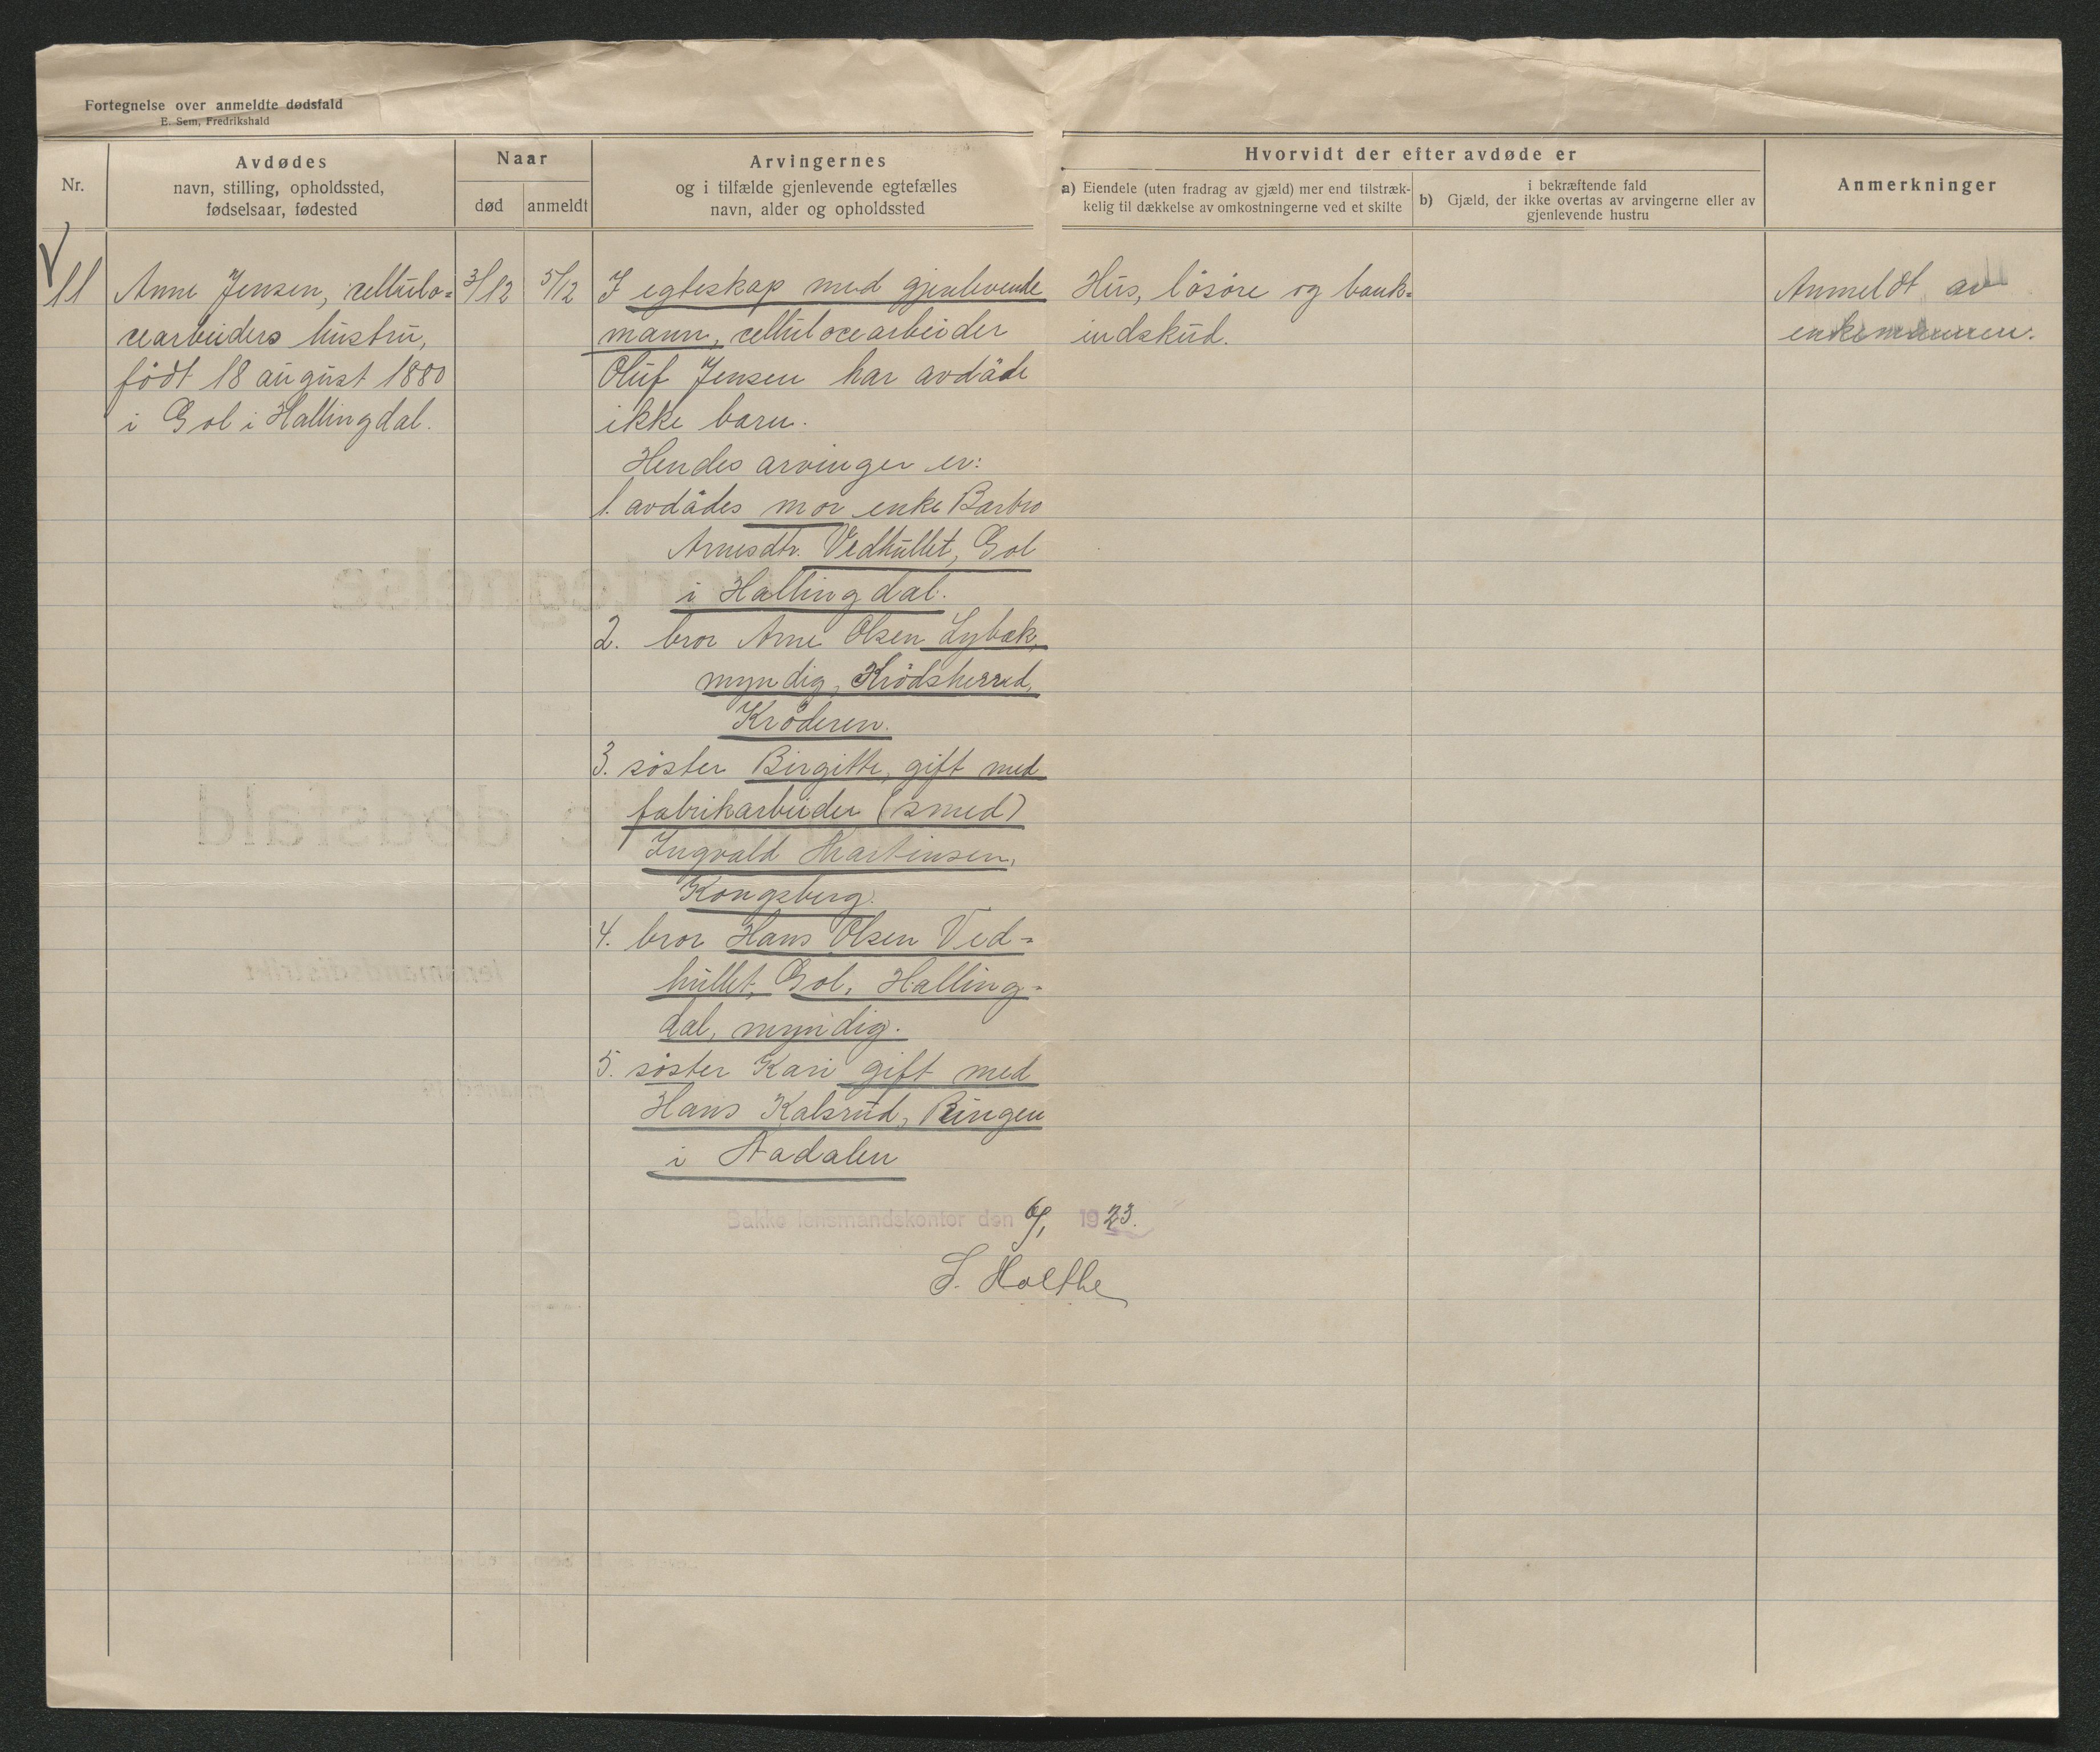 Fortegnelse over anmeldte dødsfald
E. Sem, Fredrikshald
Nr.
Avdødes
navn, stilling, opholdssted,
fødselsaar, fødested
Naar
død
anmeldt
Arvingernes
og i tilfælde gjenlevende egtefælles
navn, alder og opholdssted
Hvorvidt der efter avdøde er
a) Eiendele (uten fradrag av gjæld) mer end tilstræk-
kelig til dækkelse av omkostningerne ved et skilte
i bekræftende fald
b) Gjæld, der ikke overtas av arvingerne eller av
gjenlevende hustru
Anmerkninger
11
Anne Jensen, cellulo=
cearbeiders hustru,
födt 18 august 1880
i Gol i Hallingdal.
3/12
5/12
I egteskap med gjenlevende
mann, cellulocearbeider
Oluf Jensen har avdöde
ikke barn.
Hendes arvinger er:
1. avdödes mor enke Barbro
Arnesdtr. Vedhullet, Gol
i Hallingdal.
2. bror Arne Olsen Lybæk,
myndig, Krödsherred,
Kröderen.
3. söster Birgitte, gift med
fabrikarbeider (smed)
Ingvald Martinsen,
Kongsberg.
4. bror Hans Olsen Ved=
hullet, Gol, Halling=
dal, myndig.
5. söster Kari gift med
Hans Kalsrud, Ringen
i Aadalen
Hus, lösöre og bank=
indskud.
Anmeldt av
enkemannen.
Bakke lensmandskontor den 1923.
S. Holthe